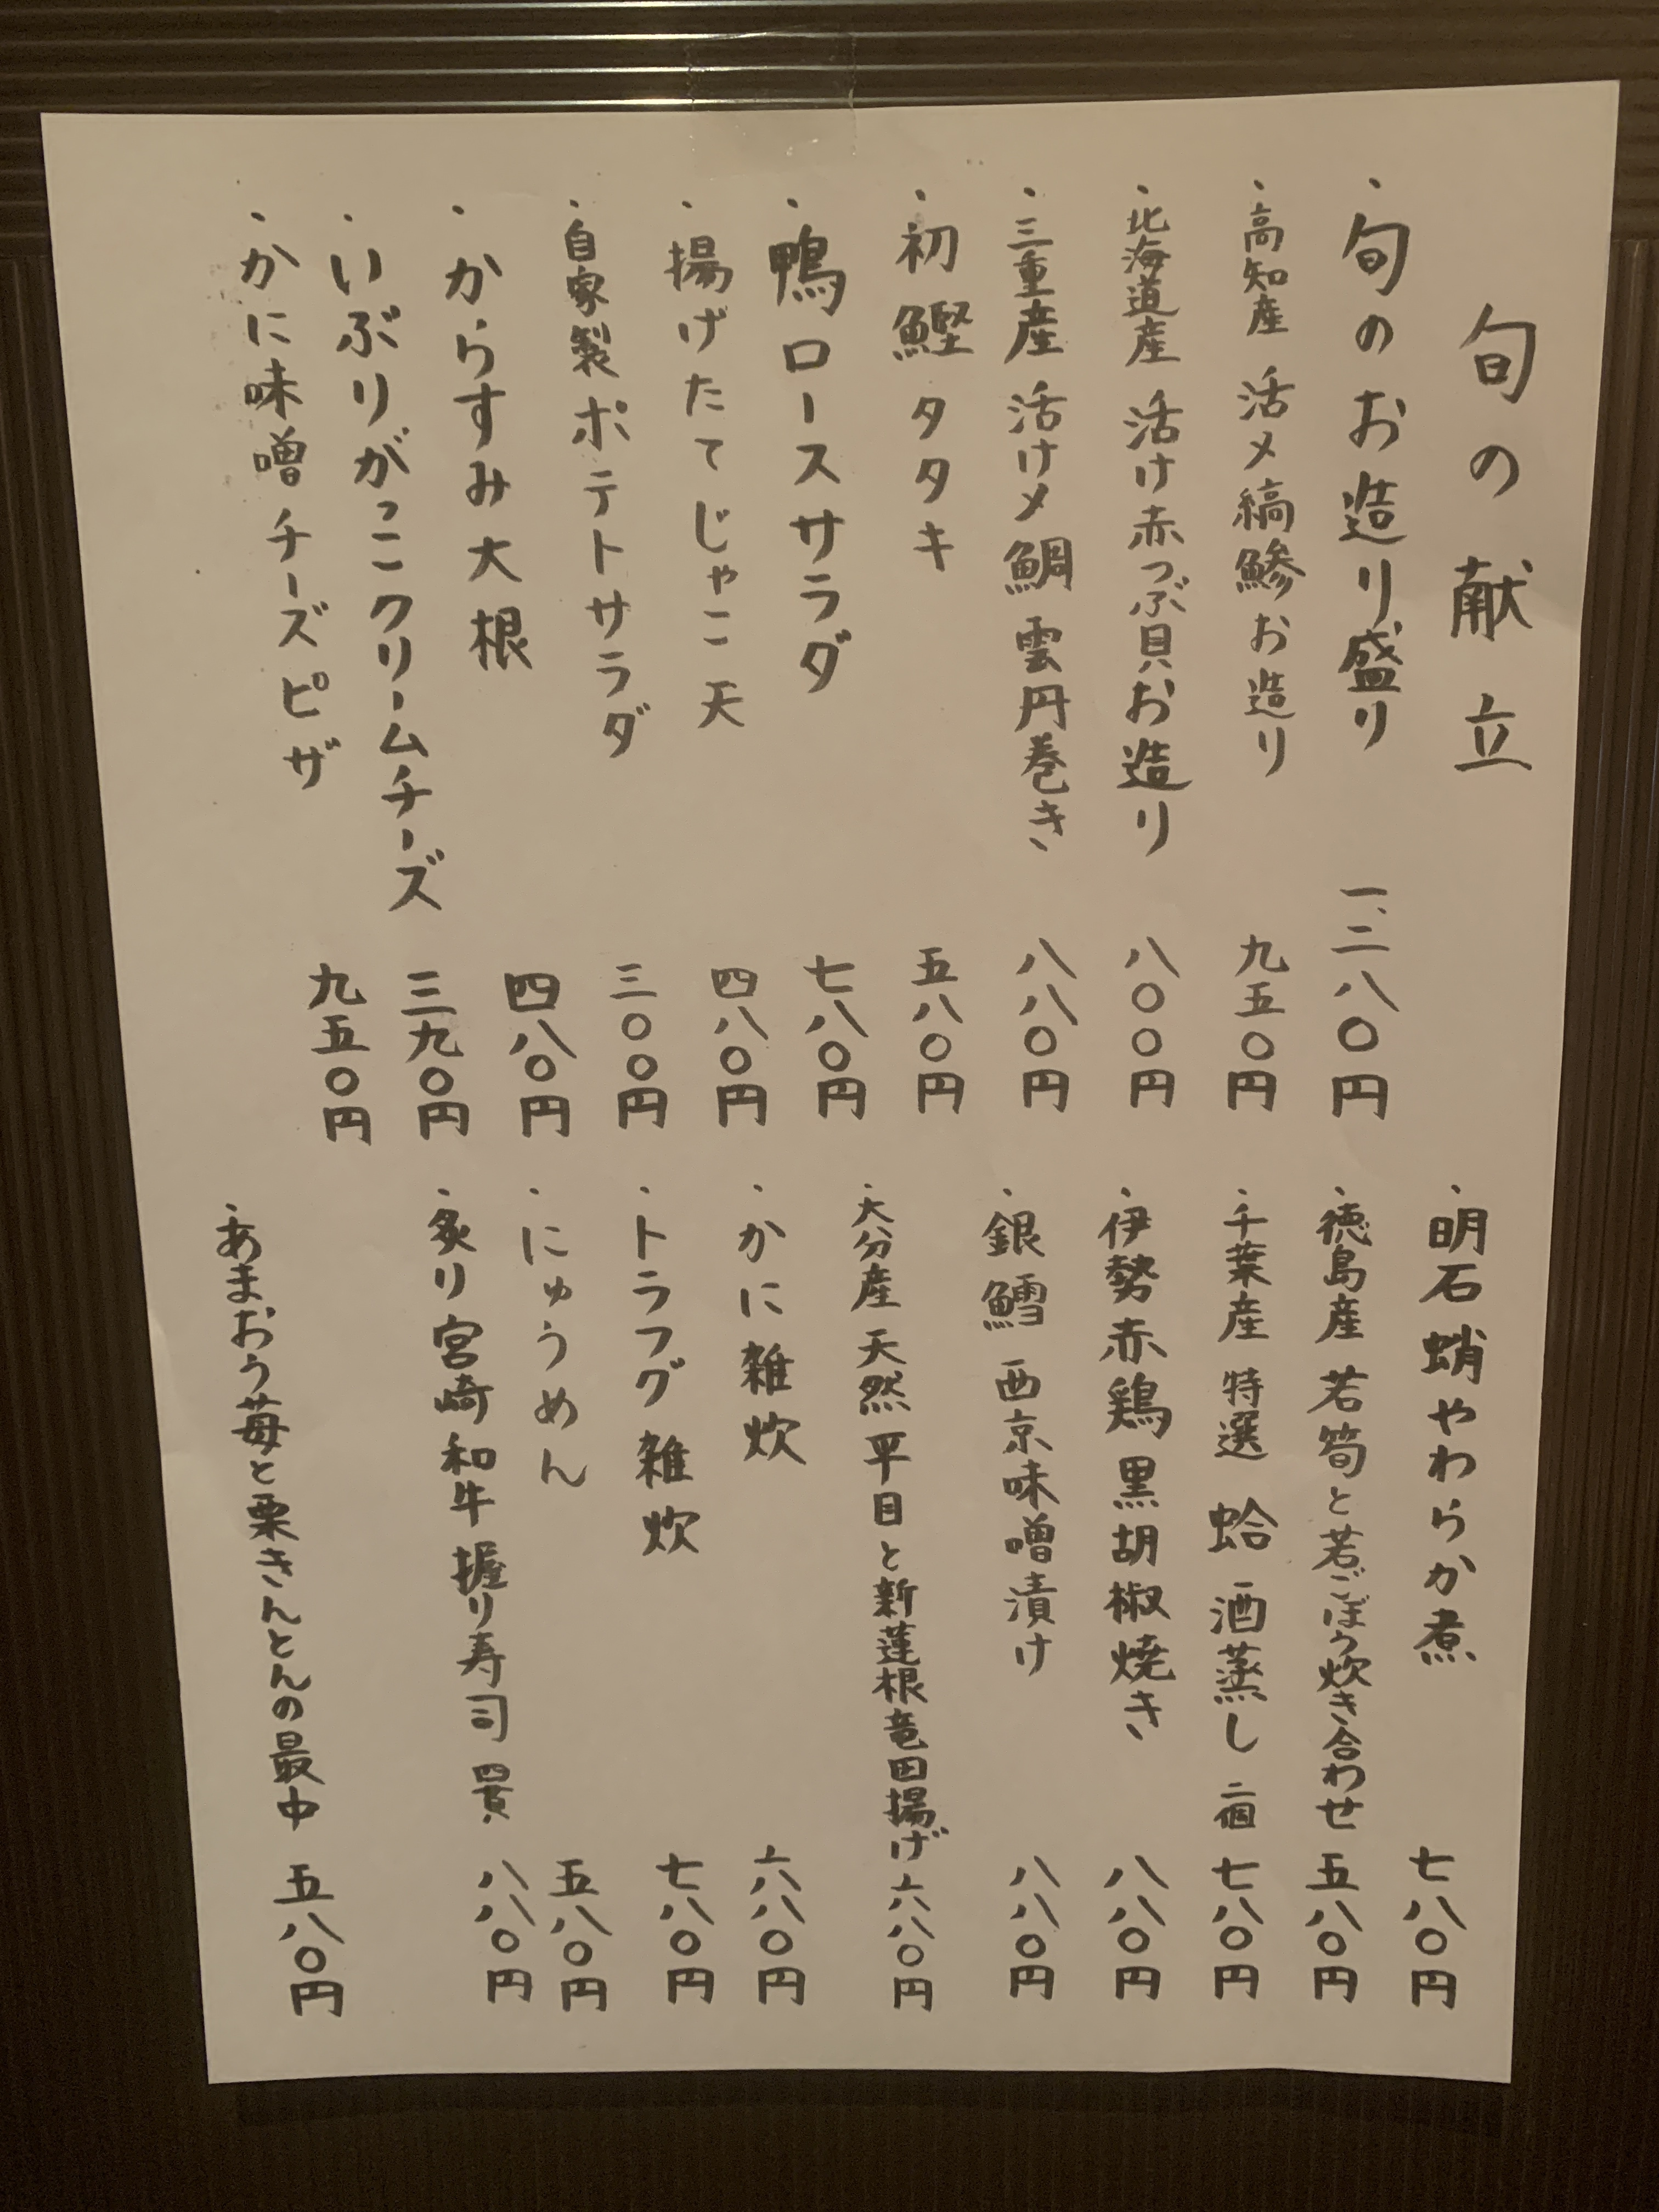 旬の献立
・旬のお造り盛り 一、二八〇円
・高知産 活〆縞鯵お造り 九五〇円
・北海道産 活け赤つぶ貝お造り 八〇〇円
・三重産 活け〆鯛 雲丹巻き 八八〇円
・初鰹タタキ 五八〇円
・鴨ロースサラダ 七八〇円
・揚げたてじゃこ天 四八〇円
・自家製ポテトサラダ 三〇〇円
・からすみ大根 四八〇円
・いぶりがっこクリームチーズ 三九〇円
・かに味噌チーズピザ 九五〇円
・明石蛸やわらか煮 七八〇円
・徳島産 若筍と若ごぼう炊き合わせ 五八〇円
・千葉産 特選 蛤 酒蒸し 二個 七八〇円
・伊勢赤鶏黒胡椒焼き 八八〇円
・銀鱈 西京味噌漬け 八八〇円
・大分産 天然平目と新蓮根竜田揚げ 六八〇円
・かに雑炊 六八〇円
・トラフグ雑炊 七八〇円
・にゅうめん 五八〇円
・炙り宮崎和牛握り寿司 四貫 八八〇円
・あまおう苺と栗きんとんの最中 五八〇円